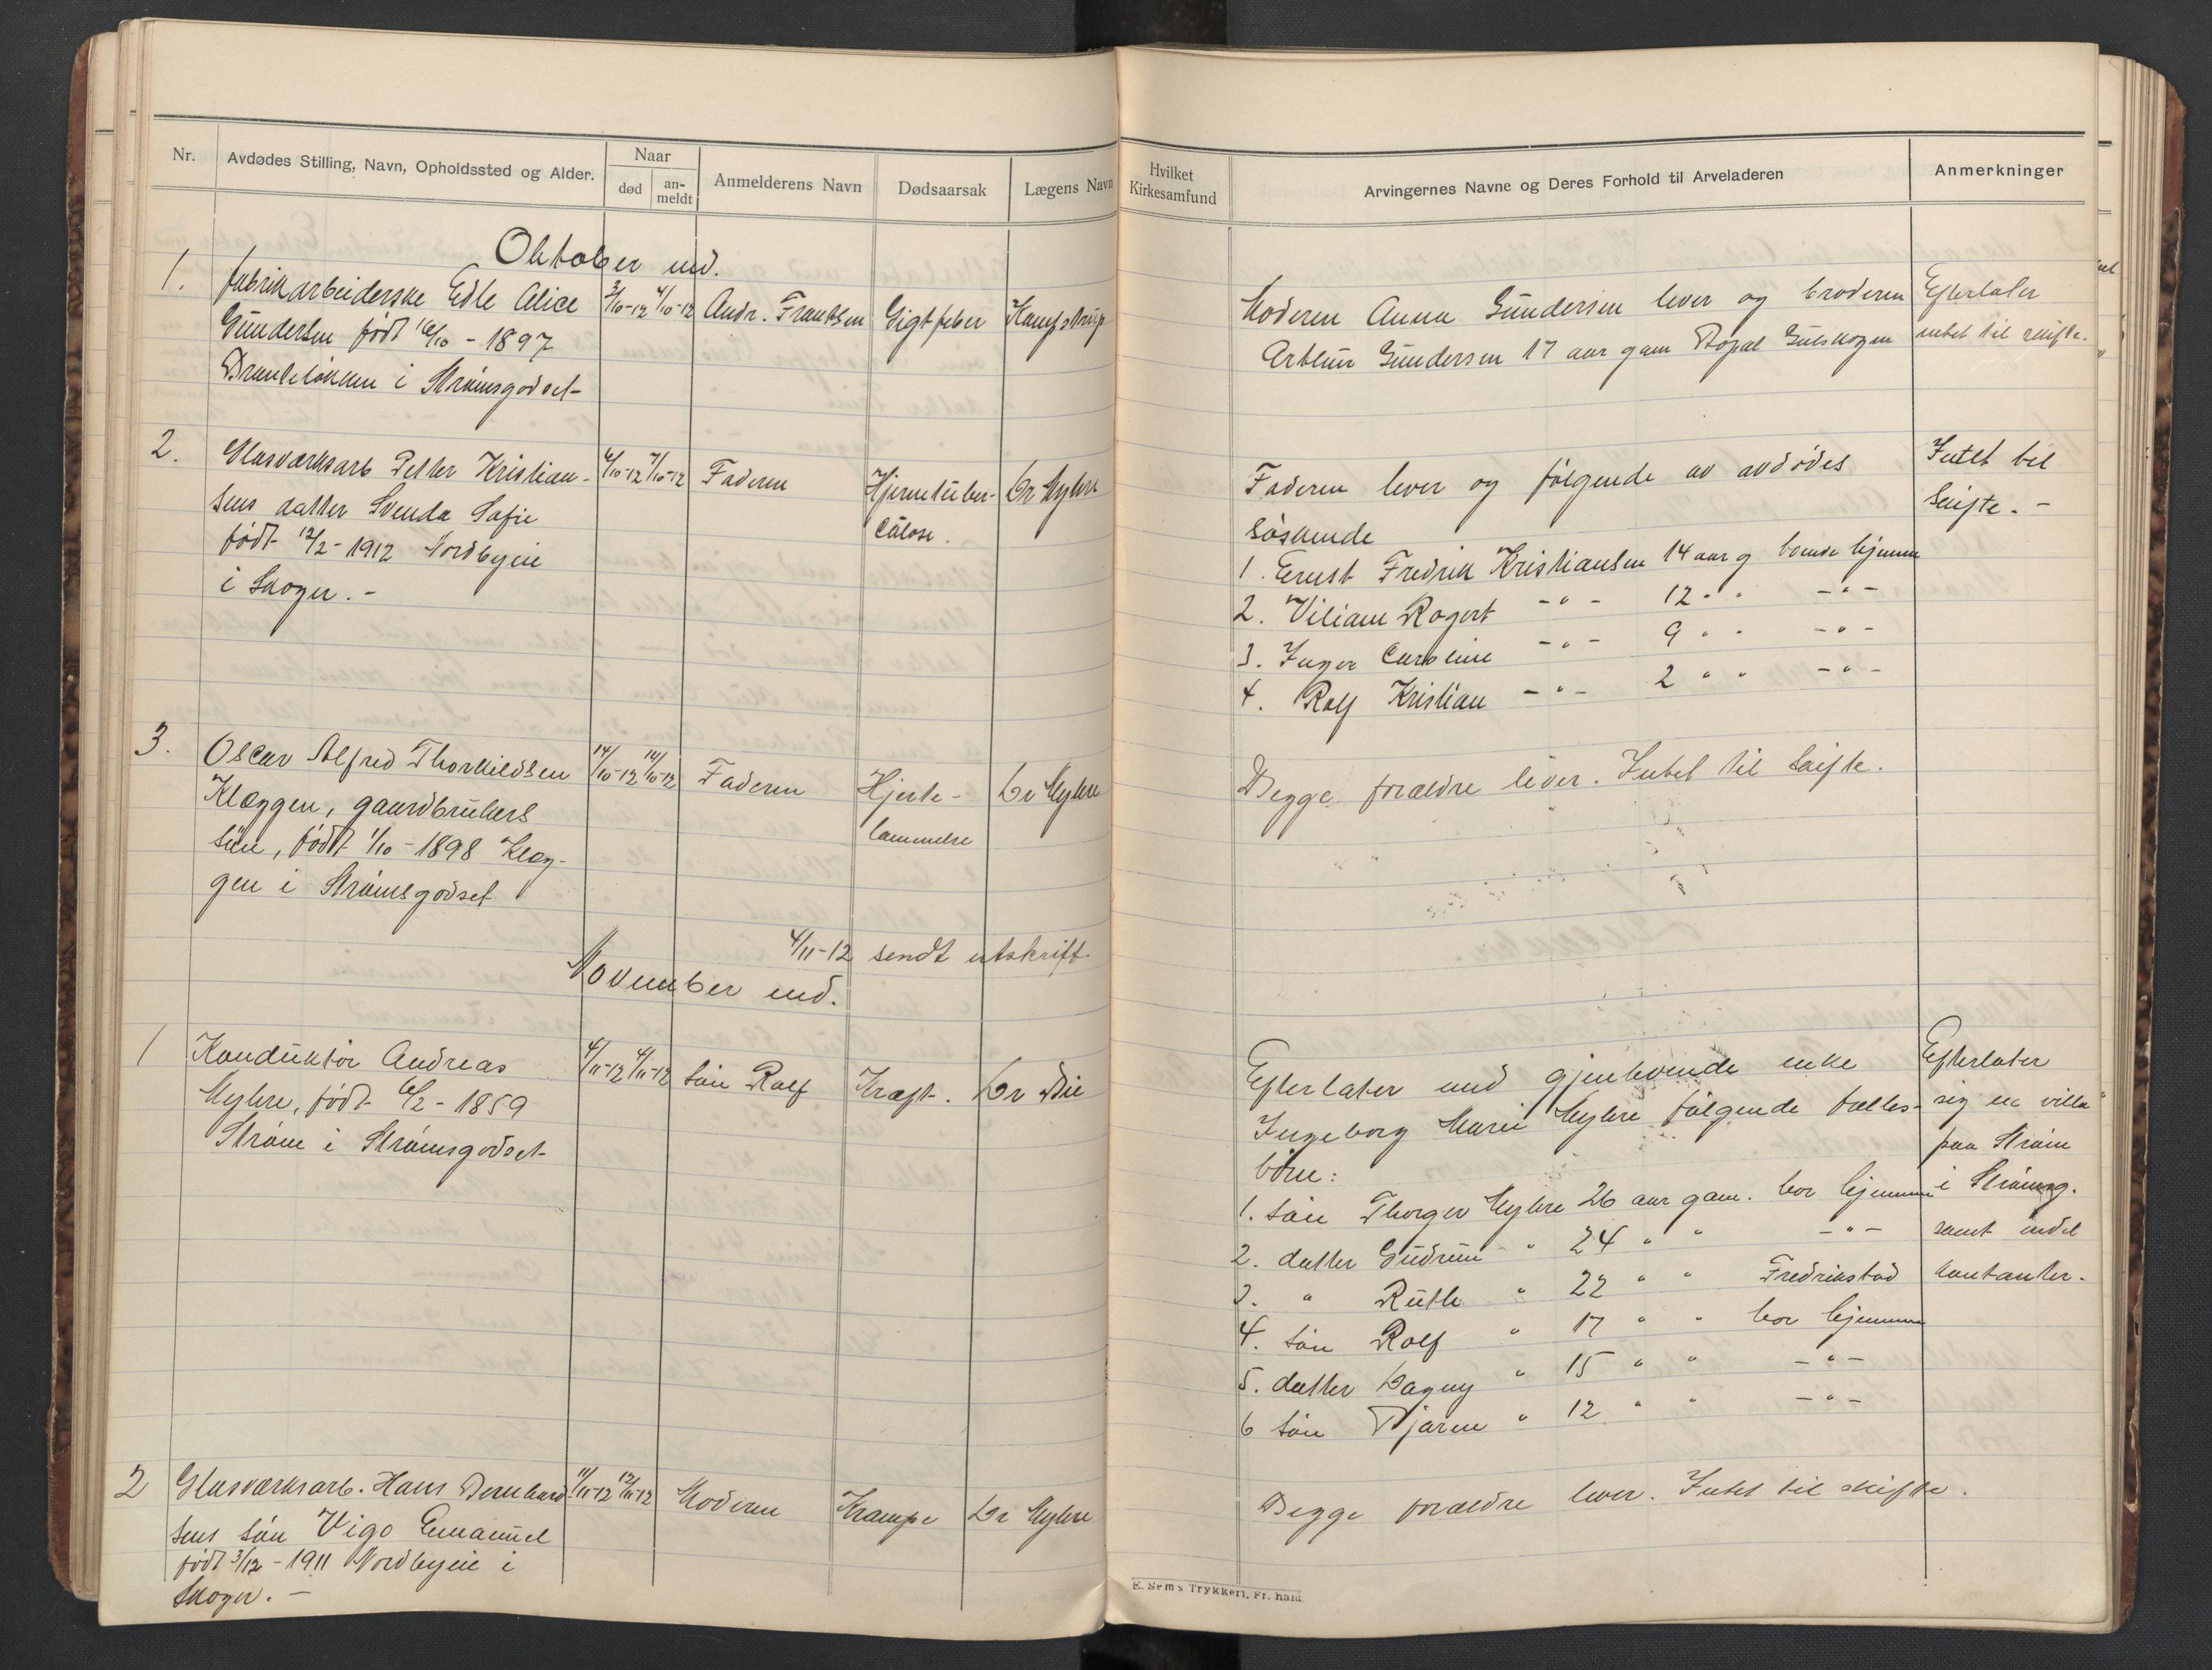 Nr.
Avdødes Stilling, Navn, Opholdssted og Alder.
Naar
død
an-
meldt
Anmelderens Navn
Dødsaarsak
Lægens Navn
Oktober md.
1. fabrikarbeiderske Edle Alice 3/10-12 4/10-12 Andr. Frantsen Gigtfeber Kampstrup
Gundersen født 16/10 - 1897
i Strømsgodset
2. Glasværksarb Petter Kristian- 6/10-12 7/10-12 Faderen Hjernetuber- Dr Myhre
sens datter Svenda Sofie culose.
født 12/2 - 1912 Nordbyeie
i Skoger. -
3. Oscar Alfred Thorkildsen 14/10-12 14/10-12 Faderen Hjerte- Dr Myhre
Kløggen, gaardbrukers lammelse
søn, født 1/10 - 1898 Kløg-
gen i Strømsgodset
4/11-12 sendt utskrift
November md.
1 Konduktør Andreas 4/11-12 4/11-12 søn Rolf Kræft. Dr Bie
Myhre, født 6/2 - 1859
Strøm i Strømsgodset
2 Glasværksarb. Hans Bernhard 11/11-12 12/11-12 Moderen Krampe Dr Myhre
sens søn Vigo Emanuel
født 3/12 - 1911 Nordbyeie i
Skoger. -
Hvilket
Kirkesamfund
Arvingernes Navne og Deres Forhold til Arveladeren
Anmerkninger
Moderen Anna Gundersen lever og broderen Efterlater
Arthur Gundersen 17 aar gam Bopæl Gulskogen intet til skifte.
Faderen lever og følgende av avdødes Intet til
søskende skifte. -
1. Ernst Fredrik Kristiansen 14 aar g boende hjemme
2. Viliam Rogert -"- 12 " " -"-
3. Inger Caroline -"- 9 " " -"-
4. Rolf Kristian -"- 2 " " -"-
Begge forældre lever. Intet til skifte.
Efterlater med gjenlevende enke Efterlater
Ingeborg Marie Myhre følgende fælles- sig en villa
børn: paa Strøm
1. søn Thorger Myhre 26 aar gam. bor hjemme i Strømsg.
2. datter Gudrun " 24 " " -"- samt endel
3. " Ruth " 22 " " Fredrikstad kontanter.
4. søn Rolf " 17 " " bor hjemme
5. datter Dagny " 15 " " -"-
6 søn Bjarne " 12 " " -"-
Begge forældre lever. Intet til skifte.
E. Sem's Trykkeri, Fr. hald